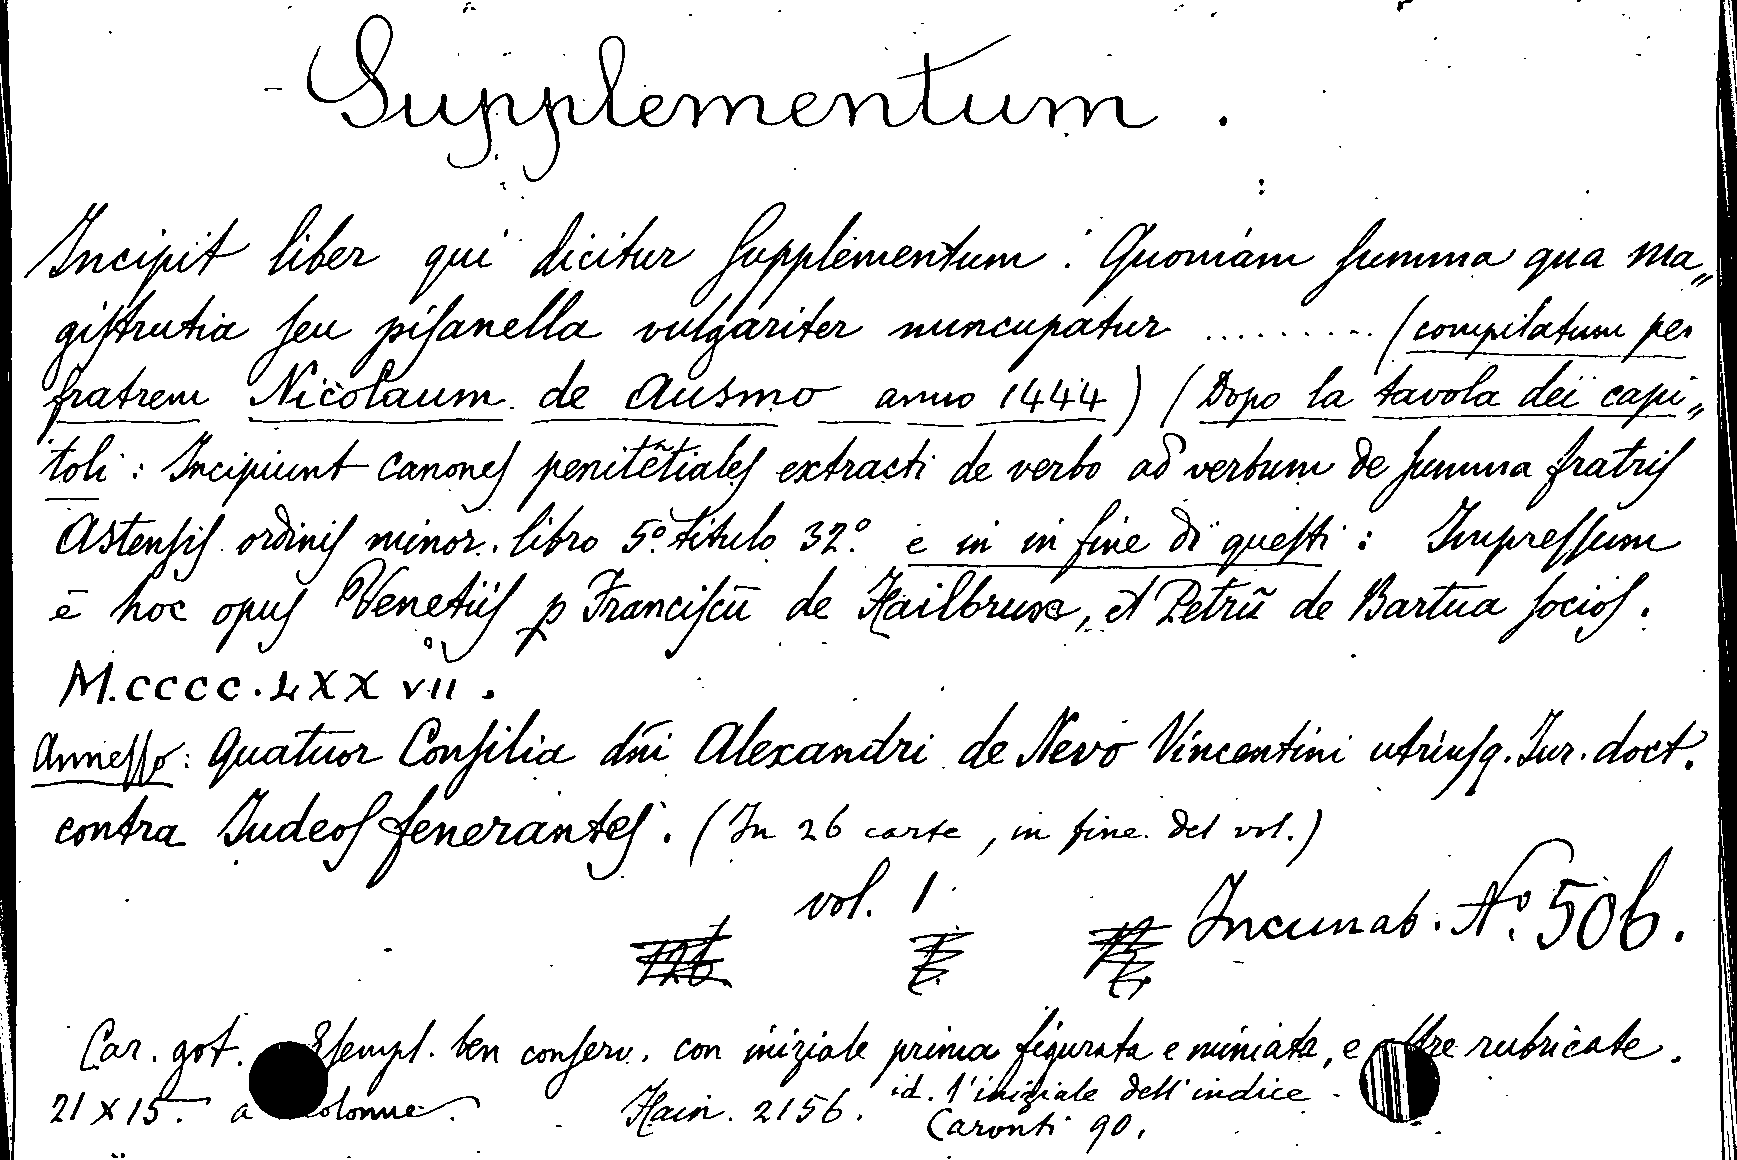 Supplementum.
Incipit liber qui dicitur Supplementum. Quoniam summa qua ma„
gistrutia seu pisanella vulgariter nuncupatur ......... (compilatum per
fratrem Nicolaum de Ausmo anno 1444) (Dopo la tavola dei capi„
toli: Incipiunt canones penitētiales extracti de verbo ad verbum de summa fratris
Astensis ordinis minor. libro 5º titulo 32º. e in in fine di questi: Impressum
ē hoc opus Venetiis p Franciscū de Hailbrun, et Petrū de Bartua socios.
M.CCCC.LXXVII.
Annesso: Quatuor Consilia dñi Alexandri de Nevo Vincentini utriusq. Jur. doct.
contra Judeos fenerantes. (In 26 carte, in fine del vol.)
vol. 1
Incunab. Nº. 506.
Car. got. Esempl. ben conserv. con iniziale prima figurata e miniata, e rubricate.
id. l'iniziale dell'indice
21 x 15. a
Hain. 2156. Caronti 90.